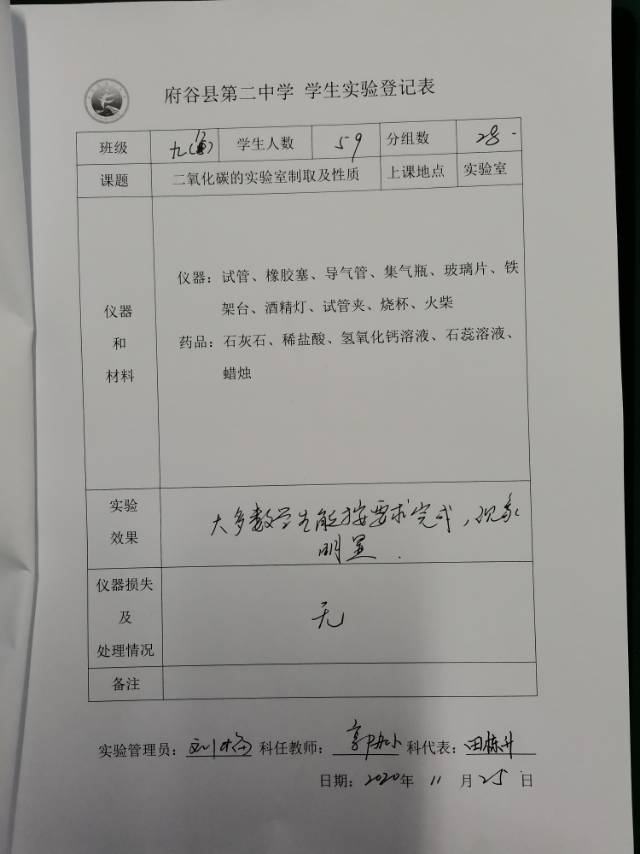 府谷县第二中学 学生实验登记表
班级 九( ) 学生人数 59 分组数 28
课题 二氧化碳的实验室制取及性质 上课地点 实验室
仪器
和
材料
仪器：试管、橡胶塞、导气管、集气瓶、玻璃片、铁
架台、酒精灯、试管夹、烧杯、火柴
药品：石灰石、稀盐酸、氢氧化钙溶液、石蕊溶液、
蜡烛
实验
效果
大多数学生能按要求完成，现象
明显.
仪器损失
及
处理情况
无
备注
实验管理员：刘梅 科任教师： 科代表：田栋升
日期：2020年 11 月 25 日